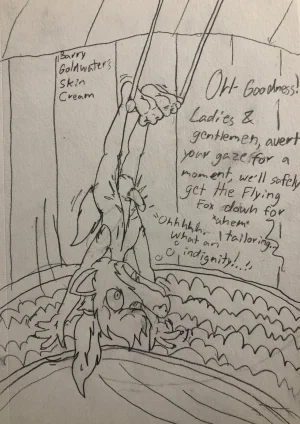 Barry
Goldwater's
Skin
Cream
OH Goodness!
Ladies &
gentlemen, avert
your gaze for a
moment, we'll safely
get the Flying
Fox down for
*ahem*
tailoring...
Ohhhhh,
what an
indignity!..!